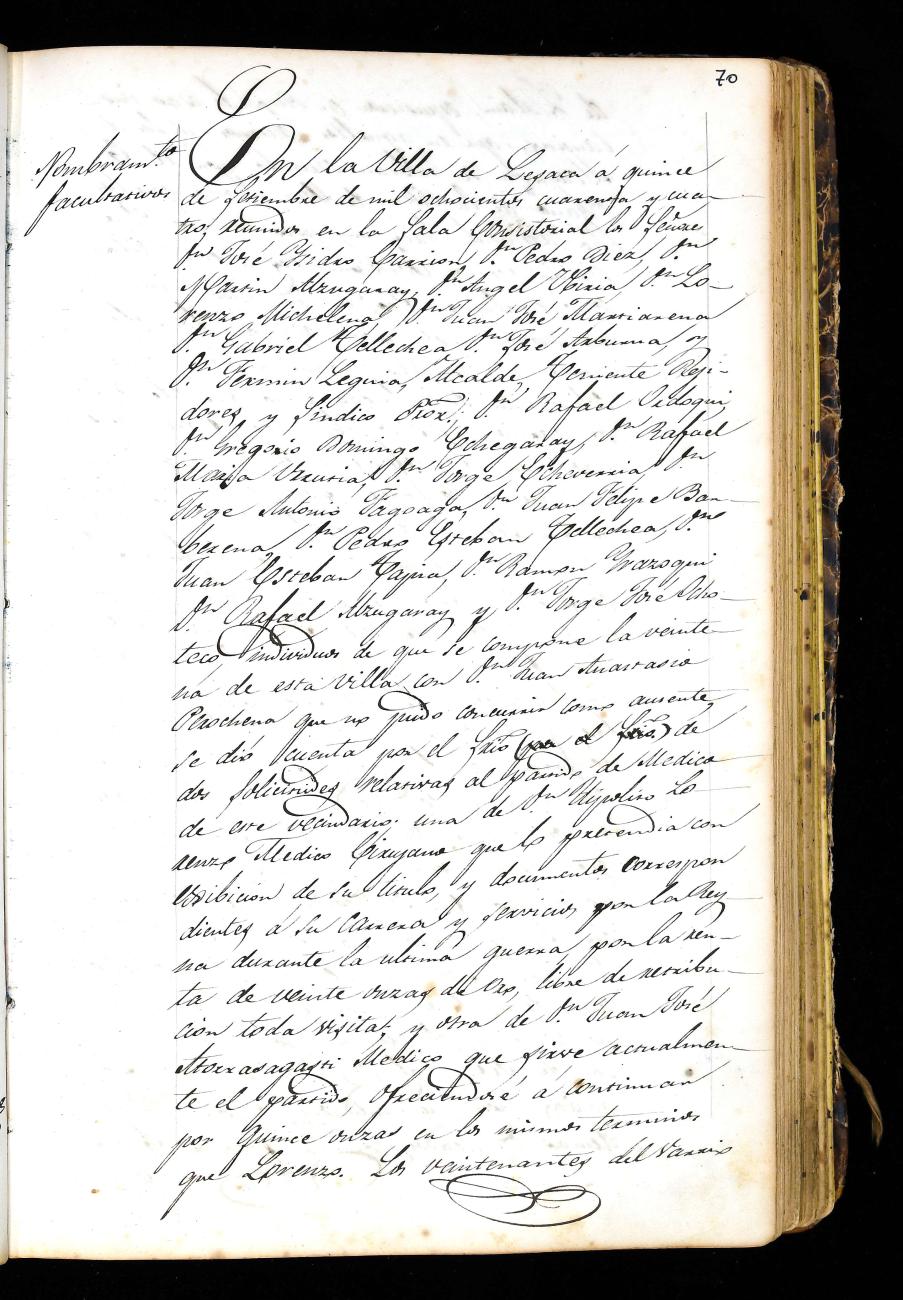 70
Nombram.to
facultativos
En la Villa de Lesaca á quince
de Setiembre de mil ochocientos cuarenta y cua-
tro, reunidos en la Sala Consistorial los Señore
Dn José Ysidro Carrion Dn Pedro Diez, Dn
Martin Alzugaray, Dn Angel Ybiria, Dn Lo-
renzo Michelena, Dn Juan José Marsiarena
Dn Gabriel Tellechea, Dn José Arburua, y
Dn Fermin Leguia, Alcalde, Teniente Reji-
dores, y Sindico Pror; Dn Rafael Endoqui
Dn Gregorio Domingo Echegaray, Dn Rafael
Maria Urrutia, Dn Jorge Echeverria Dn
Jorge Antonio Fagoaga, Dn Juan Felipe Ban-
berena, Dn Pedro Esteban Tellechea, Dn
Juan Esteban Tapia, Dn Ramon Yrazoqui
Dn Rafael Alzugaray y Dn Jorge José
teco individuos de que se compone la veinte-
na de esta Villa con Dn Juan Anastasio
Perochena que no pudo concurrir como ausente,
se dió cuenta por el Srio (por el Srio) de
dos solicitudes relativas al partido de Medico
de este vecindario: una de Dn Ypolito Lo
renzo Medico Cirujano que lo pretendia con
exibicion de su titulo, y documentos correspon
dientes á su carrera y servicios por la Rey
na durante la ultima guerra, por la ren-
ta de veinte onzas de oro, libre de retribu-
cion toda visita; y otra de Dn Juan José
Atorrasagasti Medico que sirve actualmen-
te el partido, ofreciendose á continuar
por quince onzas en los mismos terminos
que Lorenzo. Los veintenantes del Varrio